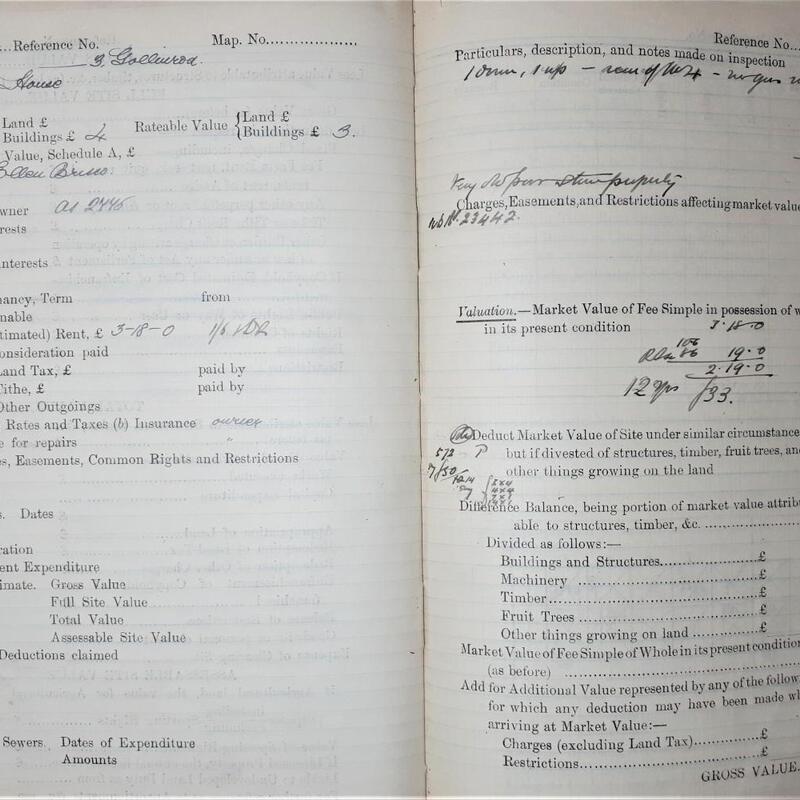 ...Reference No. Map. No..................
3, Gollinrod.
House
Land £
Buildings £ 4 Rateable Value {Land £
Buildings £ 3.
Value, Schedule A, £
Ellen Brisco
wner as 2445
rests
nterests
nancy, Term from
nable
timated) Rent, £ 3-18-0 1/6
onsideration paid
and Tax, £ paid by
Tithe, £ paid by
Other Outgoings
Rates and Taxes (b) Insurance owner
e for repairs "
es, Easements, Common Rights and Restrictions
s. Dates
ration
ent Expenditure
timate. Gross Value
Full Site Value
Total Value
Assessable Site Value
Deductions claimed
Sewers. Dates of Expenditure
Amounts
Reference No...
Particulars, description, and notes made on inspection
1 down, 1 up – – no gas
Very old poor stone property
Charges, Easements, and Restrictions affecting market value
23442.
Valuation.—Market Value of Fee Simple in possession of w
in its present condition
3.18.0
19.0
2.19.0
12 yps /33.
Deduct Market Value of Site under similar circumstance
but if divested of structures, timber, fruit trees, and
other things growing on the land
Difference Balance, being portion of market value attribu
able to structures, timber, &c. ..................
Divided as follows:—
Buildings and Structures....................£
Machinery ....................£
Timber....................£
Fruit Trees ....................£
Other things growing on land ...............£
Market Value of Fee Simple of Whole in its present condition
(as before) ....................
Add for Additional Value represented by any of the follow
for which any deduction may have been made wh
arriving at Market Value:—
Charges (excluding Land Tax)..............£
Restrictions....................£
GROSS VALUE.